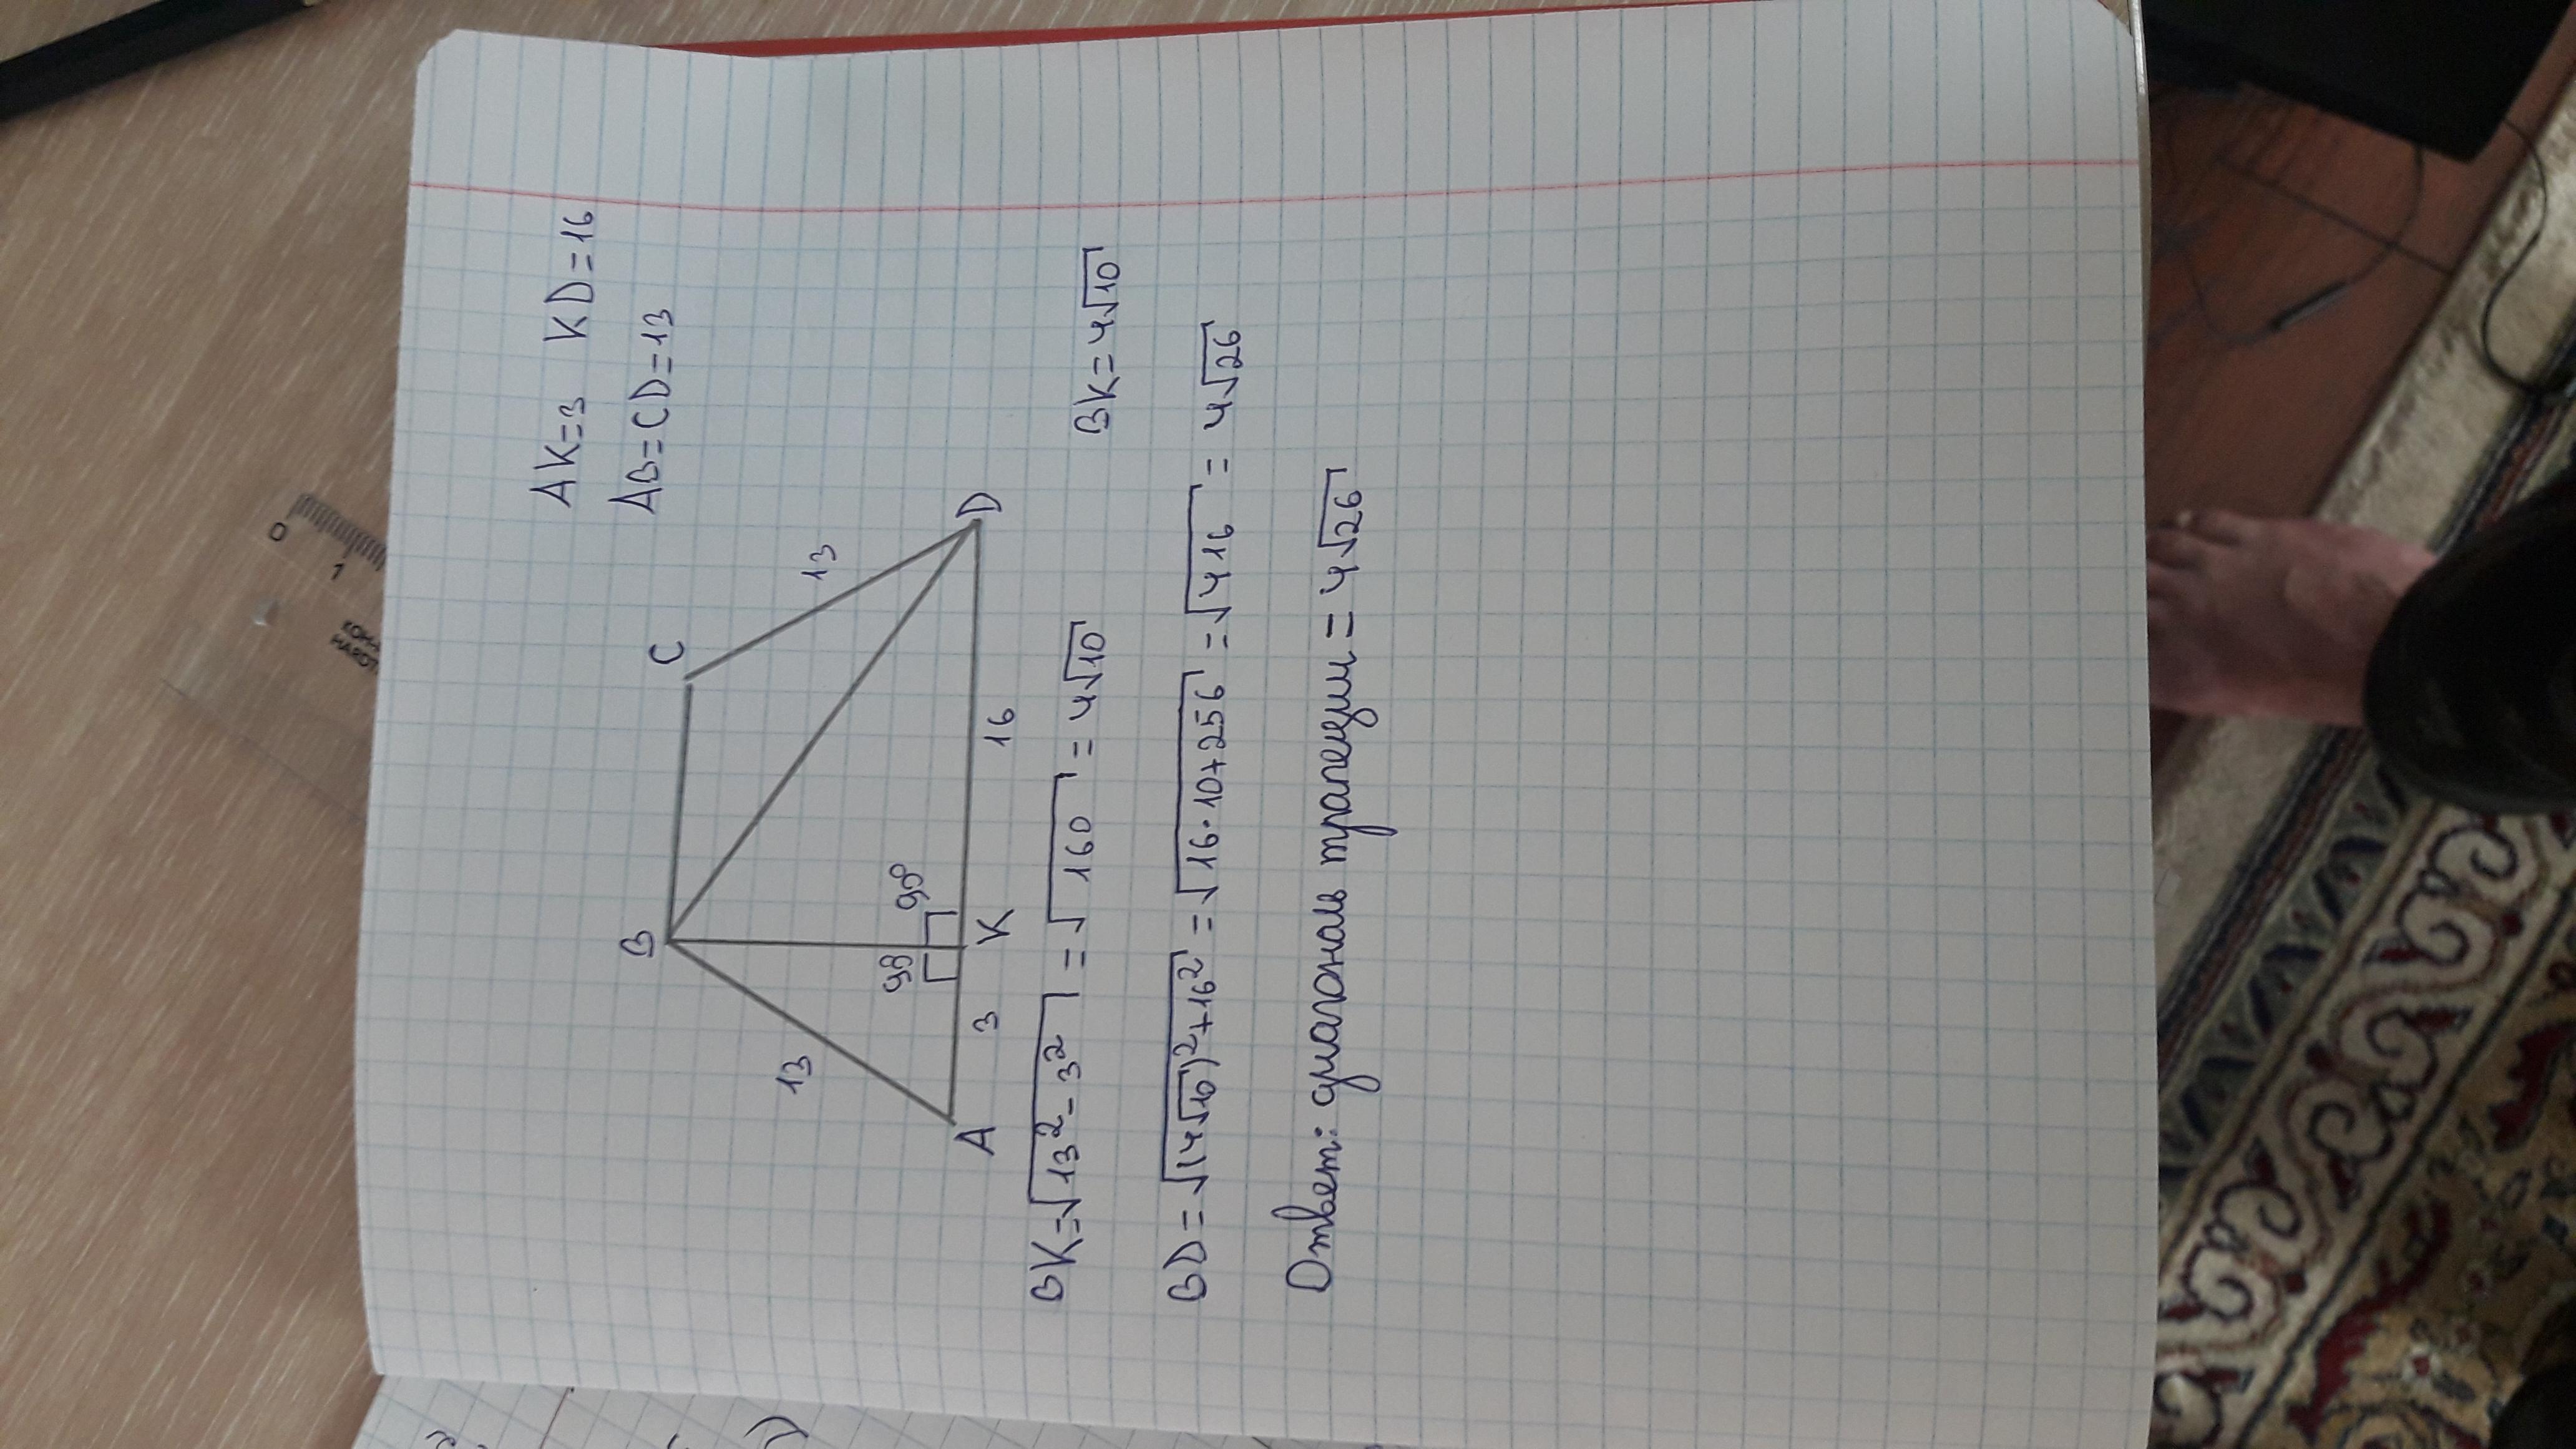 AK=3 KD=16
AB=CD=13
B
C
13
13
90
90°
A
3
K
16
D
BK=√13²-3² = √160 = 4√10
BK=4√10
BD=√(4√10)²+16² = √16·10+256 = √416 = 4√26
Ответ: диагональ трапеции = 4√26
0
1
KOH-I
HARDT